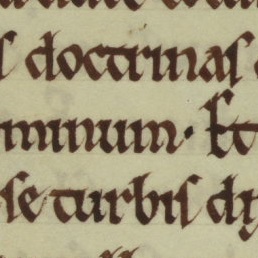 s doctrinas
minum. Et
se turbis di